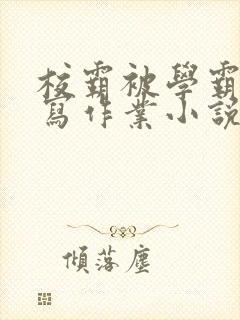 校霸被學霸
寫作業小說
傾落塵